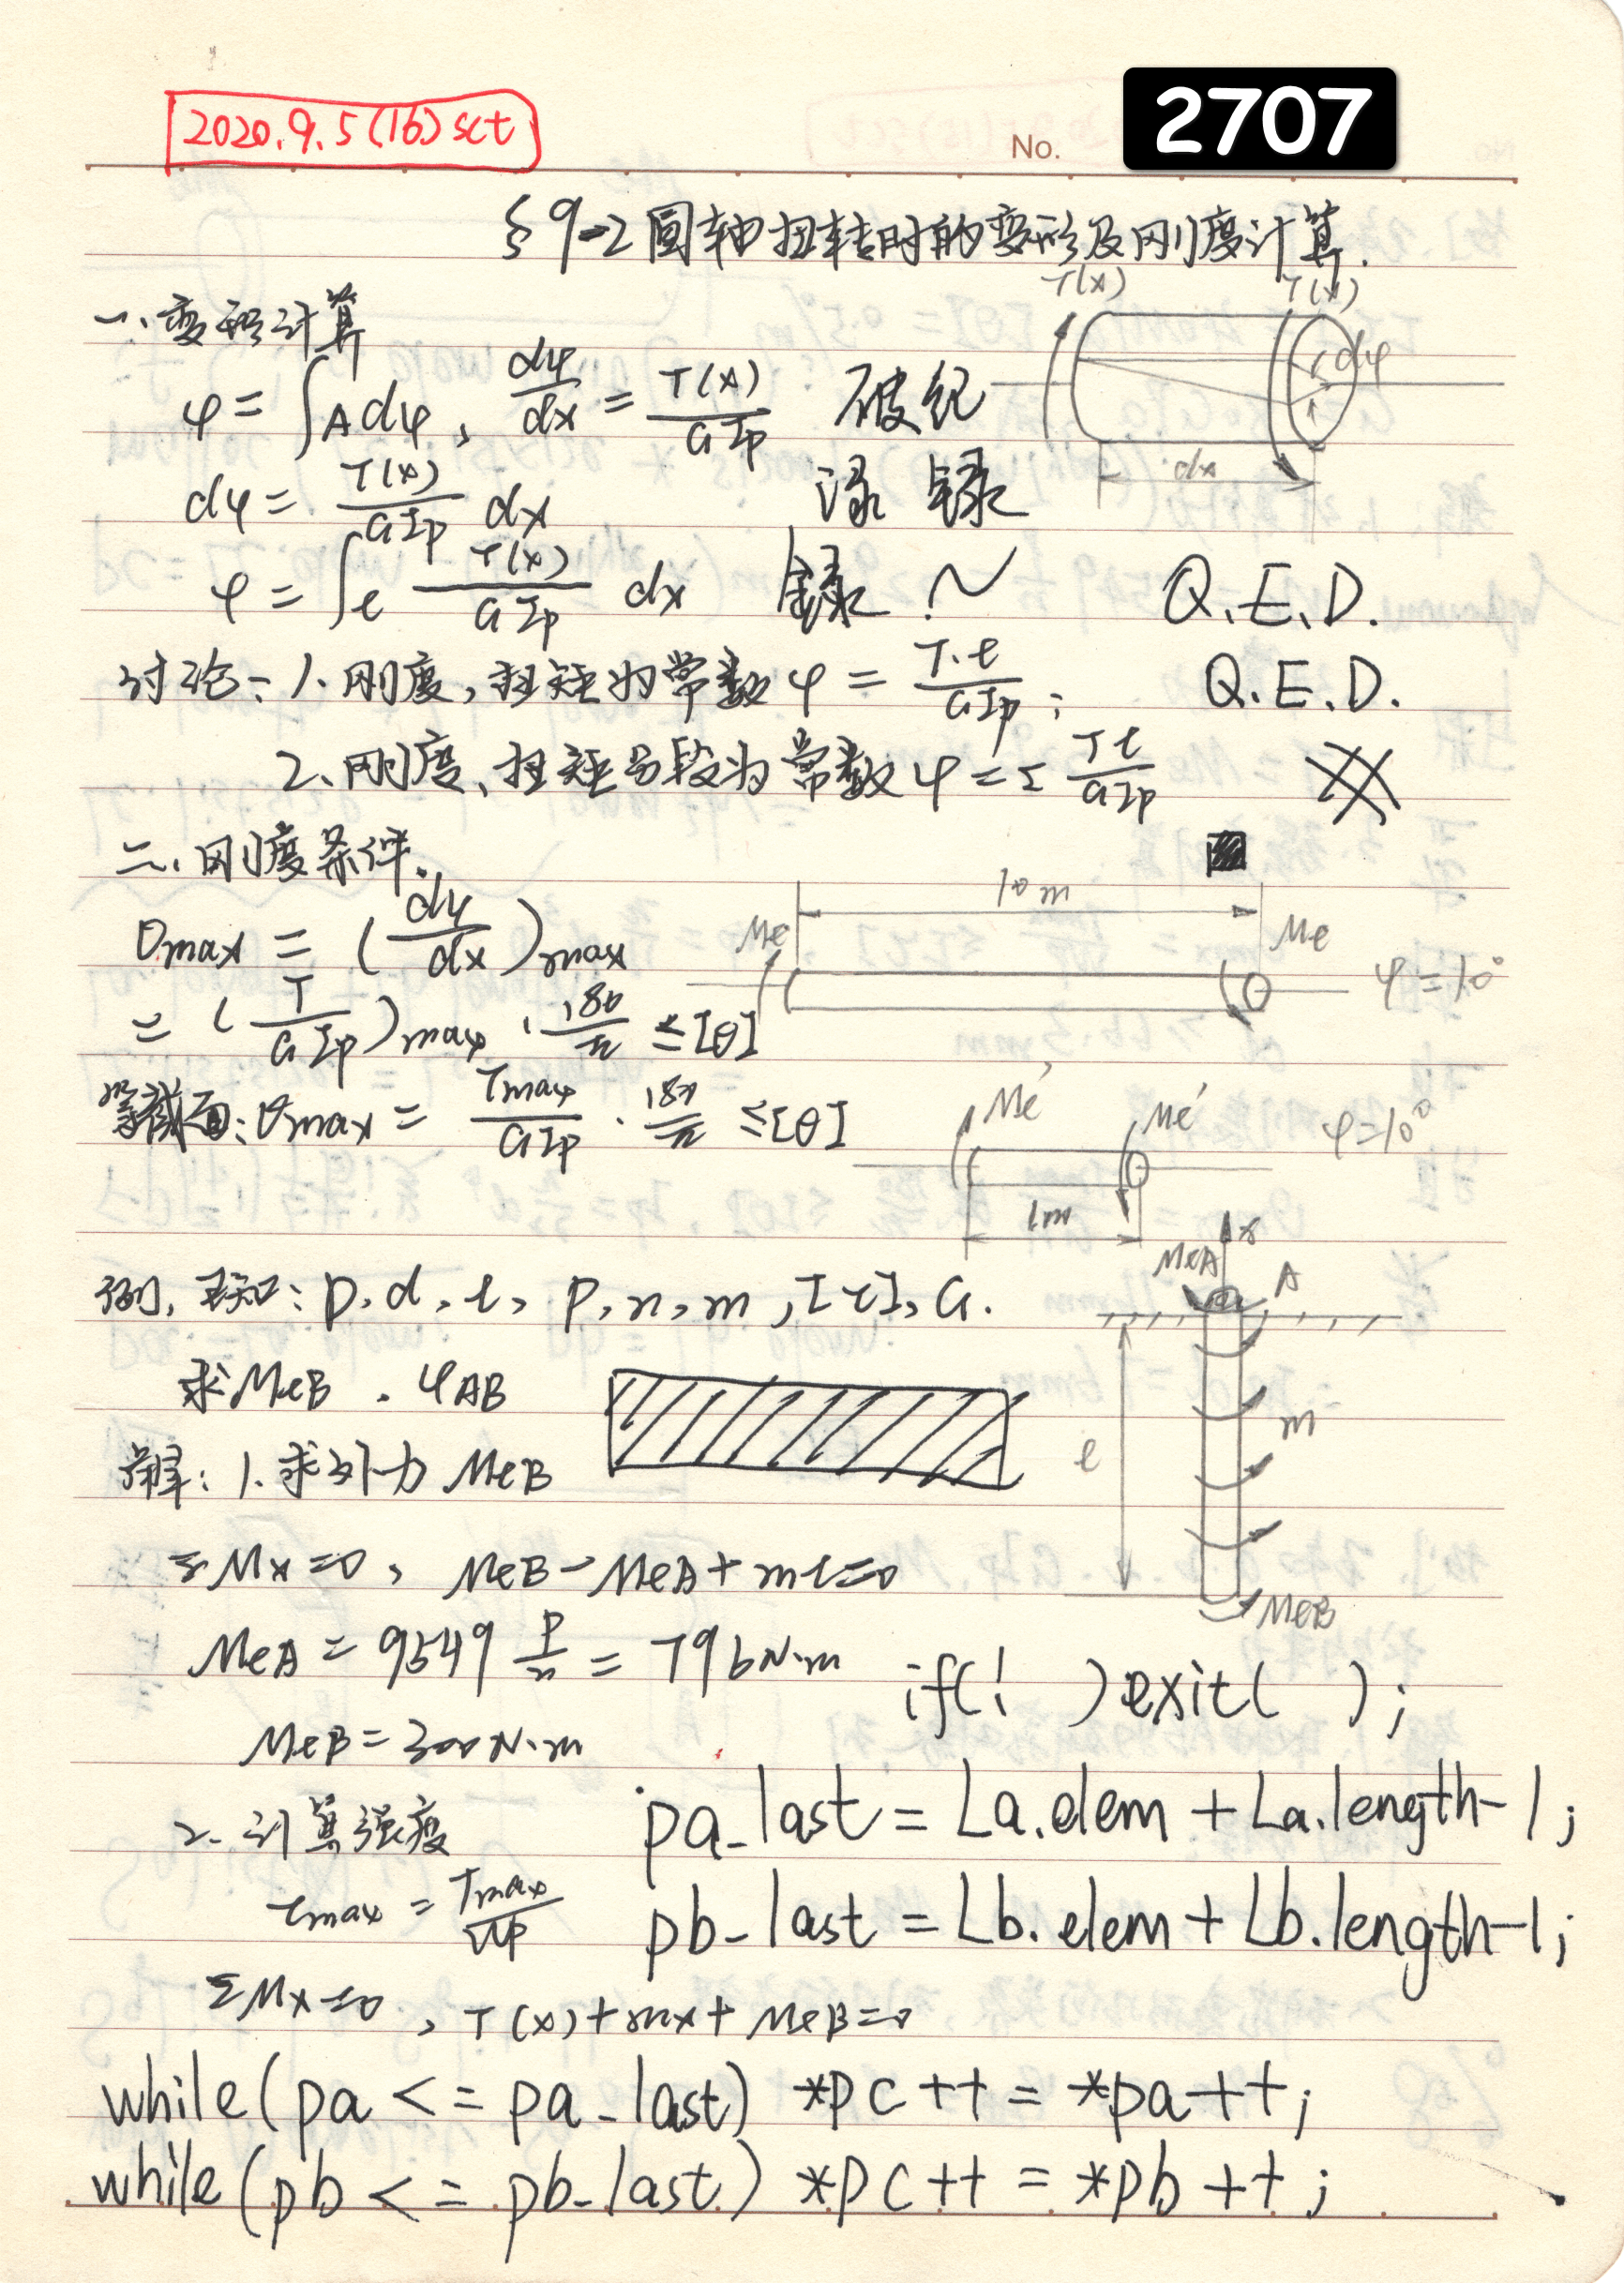 2020.9.5(16) sat
No. 2707
§9-2 圆轴扭转时的变形及刚度计算.
一、变形计算
T(x) T(x)
φ=∫A dφ, dφ/dx = T(x)/GIp 破纪
dφ
dφ= T(x)/GIp dx 渌 録
dx
φ=∫ℓ T(x)/GIp dx 録 ~ Q.E.D.
讨论: 1. 刚度, 扭矩为常数 φ= T·ℓ/GIp ; Q.E.D.
2. 刚度、扭矩分段为常数 φ=Σ Tℓ/GIp
二、刚度条件.
10m
θmax = (dφ/dx)max
Me Me φ=10°
= (T/GIp)max · 180/π ≤[θ]
等截面: θmax = Tmax/GIp · 180/π ≤[θ]
Me' Me' φ=10°
1m
MeA x A
例, 已知: D, d, ℓ, P, n, m, [τ], G.
求MeB . φAB
m
ℓ
解: 1. 求外力 MeB
ΣMx=0, MeB-MeA+mℓ=0
MeB
MeA = 9549 P/n = 796N·m if(! )exit( );
MeB=300N·m
2. 计算强度 pa_last = La.elem + La.length-1;
τmax = Tmax/Wp pb_last = Lb.elem + Lb.length-1;
ΣMx=0, T(x)+mx+MeB=0
while(pa <= pa_last) *pc++ = *pa++;
while(pb <= pb_last) *pc++ = *pb++;